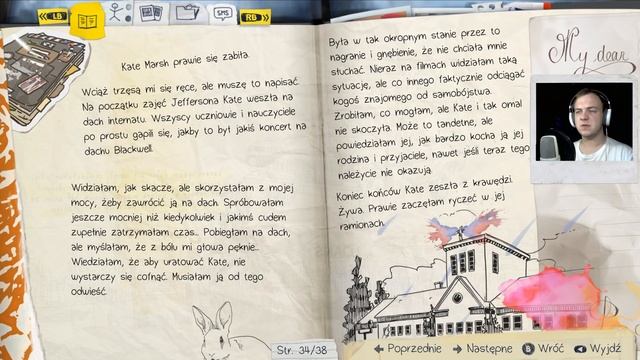 LB
SMS
RB
Kate Marsh prawie się zabiła.
Wciąż trzęsą mi się ręce, ale muszę to napisać.
Na początku zajęć Jeffersona Kate weszła na
dach internatu. Wszyscy uczniowie i nauczyciele
po prostu gapili się, jakby to był jakiś koncert na
dachu Blackwell.
Widziałam, jak skacze, ale skorzystałam z mojej
mocy, żeby zawrócić ją na dach. Spróbowałam
jeszcze mocniej niż kiedykolwiek i jakimś cudem
zupełnie zatrzymałam czas... Pobiegłam na dach,
ale myślałam, że z bólu mi głowa pęknie...
Wiedziałam, że aby uratować Kate, nie
wystarczy się cofnąć. Musiałam ją od tego
odwieść.
Była w tak okropnym stanie przez to
nagranie i gnębienie, że nie chciała mnie
słuchać. Nieraz na filmach widziałam taką
sytuację, ale co innego faktycznie odciągać
kogoś znajomego od samobójstwa.
Zrobiłam, co mogłam, ale Kate i tak omal
nie skoczyła. Może to tandetne, ale
powiedziałam jej, jak bardzo kocha ją jej
rodzina i przyjaciele, nawet jeśli teraz tego
należycie nie okazują.
Koniec końców Kate zeszła z krawędzi.
Żywa. Prawie zaczęłam ryczeć w jej
ramionach.
My dear
Str. 34/38
Poprzednie
Następne
B Wróć
Wyjdź